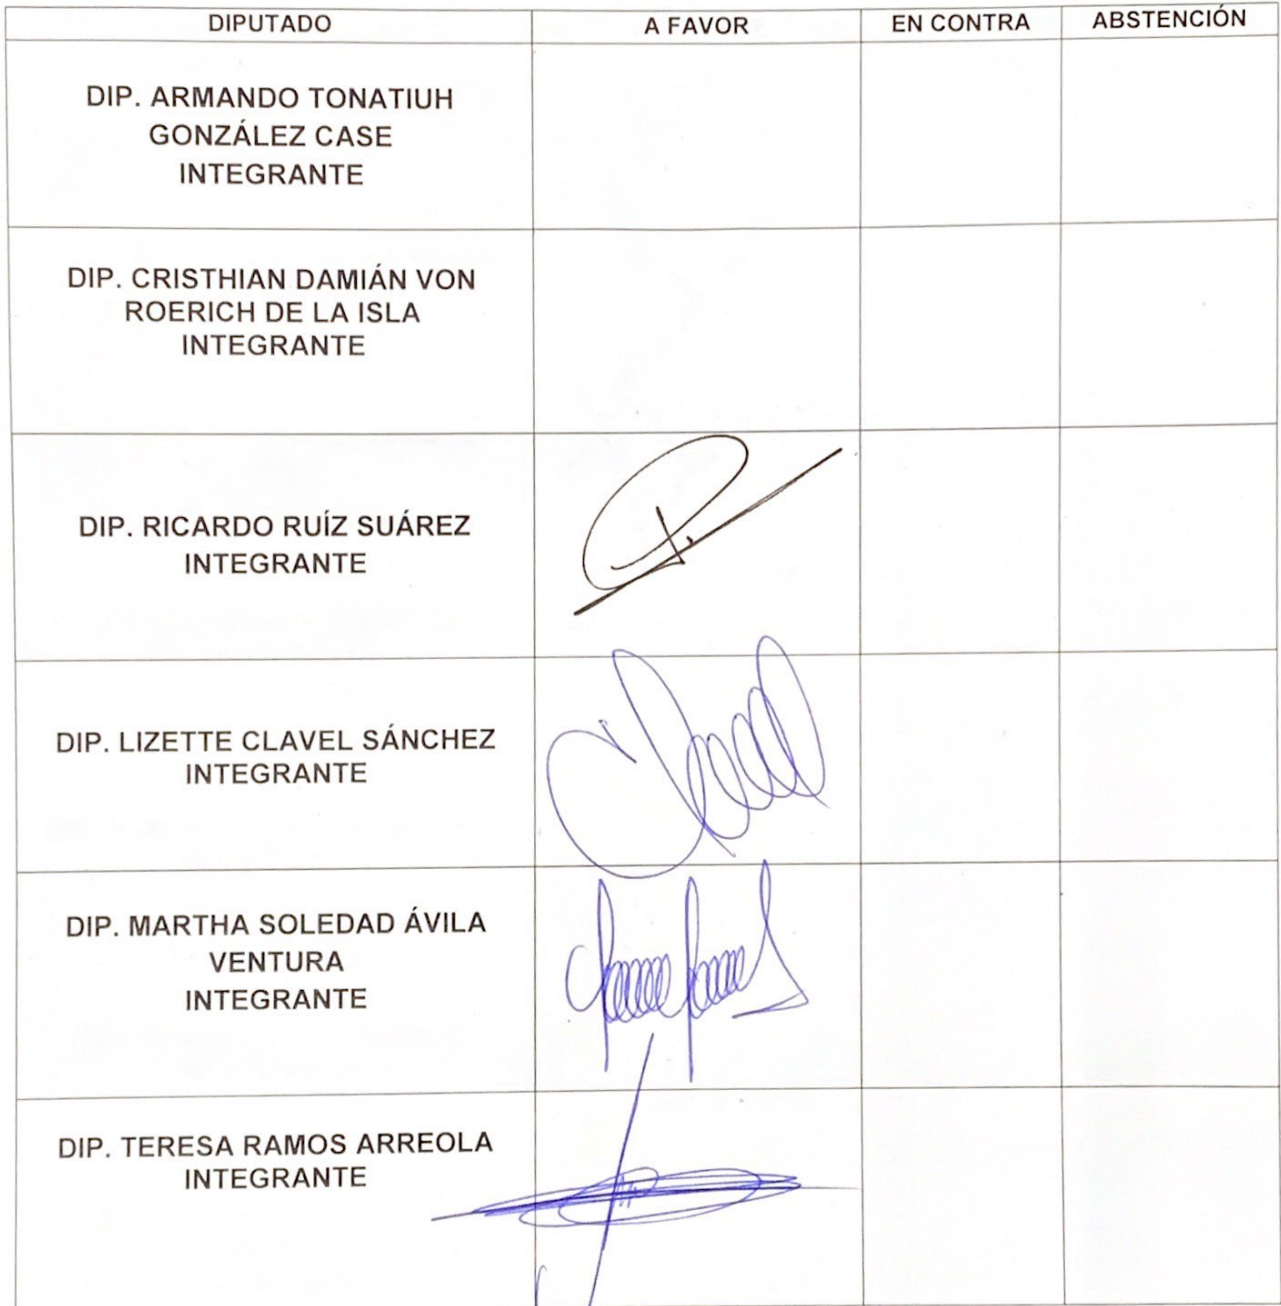 DIPUTADO A FAVOR EN CONTRA ABSTENCIÓN
DIP. ARMANDO TONATIUH
GONZÁLEZ CASE
INTEGRANTE
DIP. CRISTHIAN DAMIÁN VON
ROERICH DE LA ISLA
INTEGRANTE
DIP. RICARDO RUÍZ SUÁREZ
INTEGRANTE
DIP. LIZETTE CLAVEL SÁNCHEZ
INTEGRANTE
DIP. MARTHA SOLEDAD ÁVILA
VENTURA
INTEGRANTE
DIP. TERESA RAMOS ARREOLA
INTEGRANTE